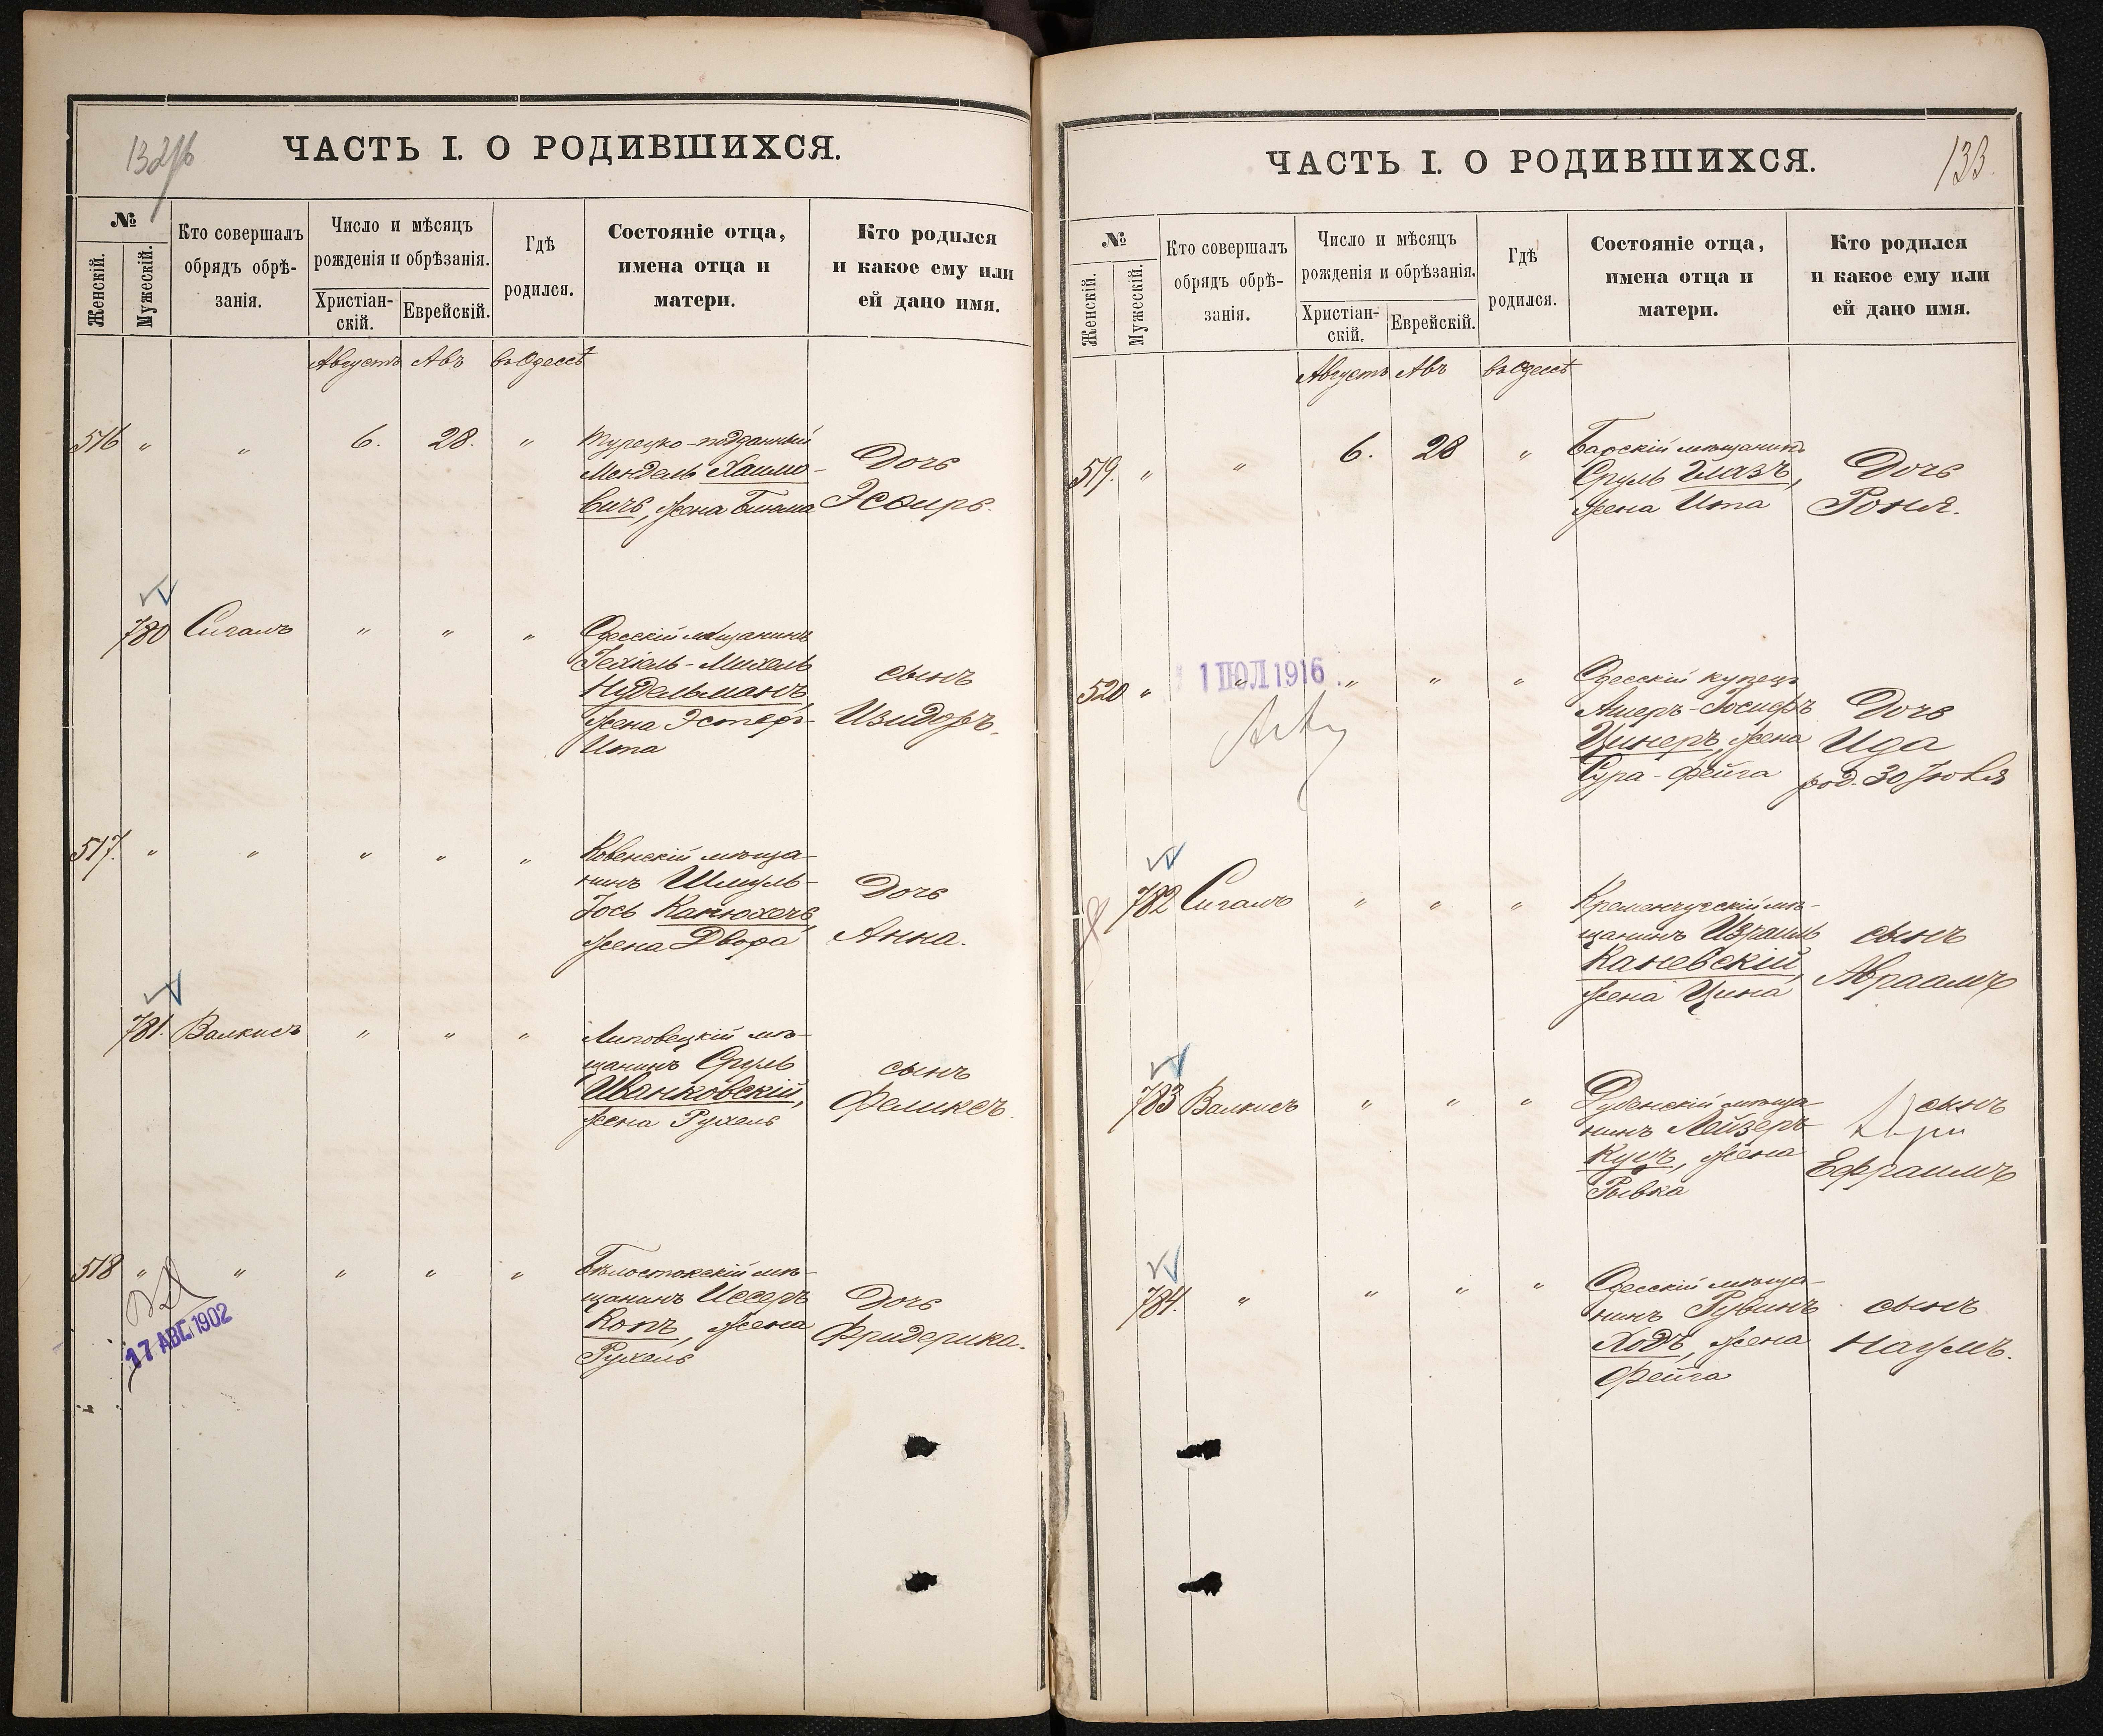 132об
ЧАСТЬ I. О РОДИВШИХСЯ.
№
Женскій.
Мужескій.
Кто совершалъ
обрядъ обрѣ-
занія.
Число и мѣсяцъ
рожденія и обрѣзанія.
Христіан-
скій.
Еврейскій.
Гдѣ
родился.
Состояніе отца,
имена отца и
матери.
Кто родился
и какое ему или
ей дано имя.
Августъ Авъ въ Одессѣ
516 " " 6. 28. "
Турецко-подданный
Мендель Хаимо-
вичъ, жена
Дочь
Эсѳирь.
780 Сигалъ " " "
Одесскій мѣщанинъ
Іехіель-Михель
Нудельманъ,
жена Эстеръ-
Ита
сынъ
Изидоръ.
517. " " " " "
Ковенскій мѣща-
нинъ Шмуль-
Іось
жена Двора
Дочь
Анна.
781. Валкисъ " " "
Липовецкій мѣ-
щанинъ Сруль
Иванковскій,
жена Рухель
сынъ
Феликсъ.
518 " " " " "
17 АВГ. 1902
Бѣлостокскій мѣ-
щанинъ Иссеръ
Копъ, жена
Рухель
Дочь
Фридерика.
133.
ЧАСТЬ I. О РОДИВШИХСЯ.
№
Женскій.
Мужескій.
Кто совершалъ
обрядъ обрѣ-
занія.
Число и мѣсяцъ
рожденія и обрѣзанія.
Христіан-
скій.
Еврейскій.
Гдѣ
родился.
Состояніе отца,
имена отца и
матери.
Кто родился
и какое ему или
ей дано имя.
Августъ Авъ въ Одессѣ
519. " " 6. 28 "
Барскій мѣщанинъ
Сруль Глазъ,
жена Ита
Дочь
Роня.
520 " " " " "
1 ІЮЛ 1916
Одесскій купецъ
Ашеръ-Іосифъ
Цинеръ, жена
Сура-Фейга
Дочь
Ида
род. 30 Іюля
782 Сигалъ " " "
Кременчугскій мѣ-
щанинъ Израиль
Каневскій,
жена Цина
сынъ
Абрамъ
783 Валкисъ " " "
Дубенскій мѣща-
нинъ Лейзеръ
жена
Рывка
сынъ
Ефраимъ
784. " " " "
Одесскій мѣща-
нинъ Рувинъ
Ходъ, жена
Фейга
сынъ
Наумъ.